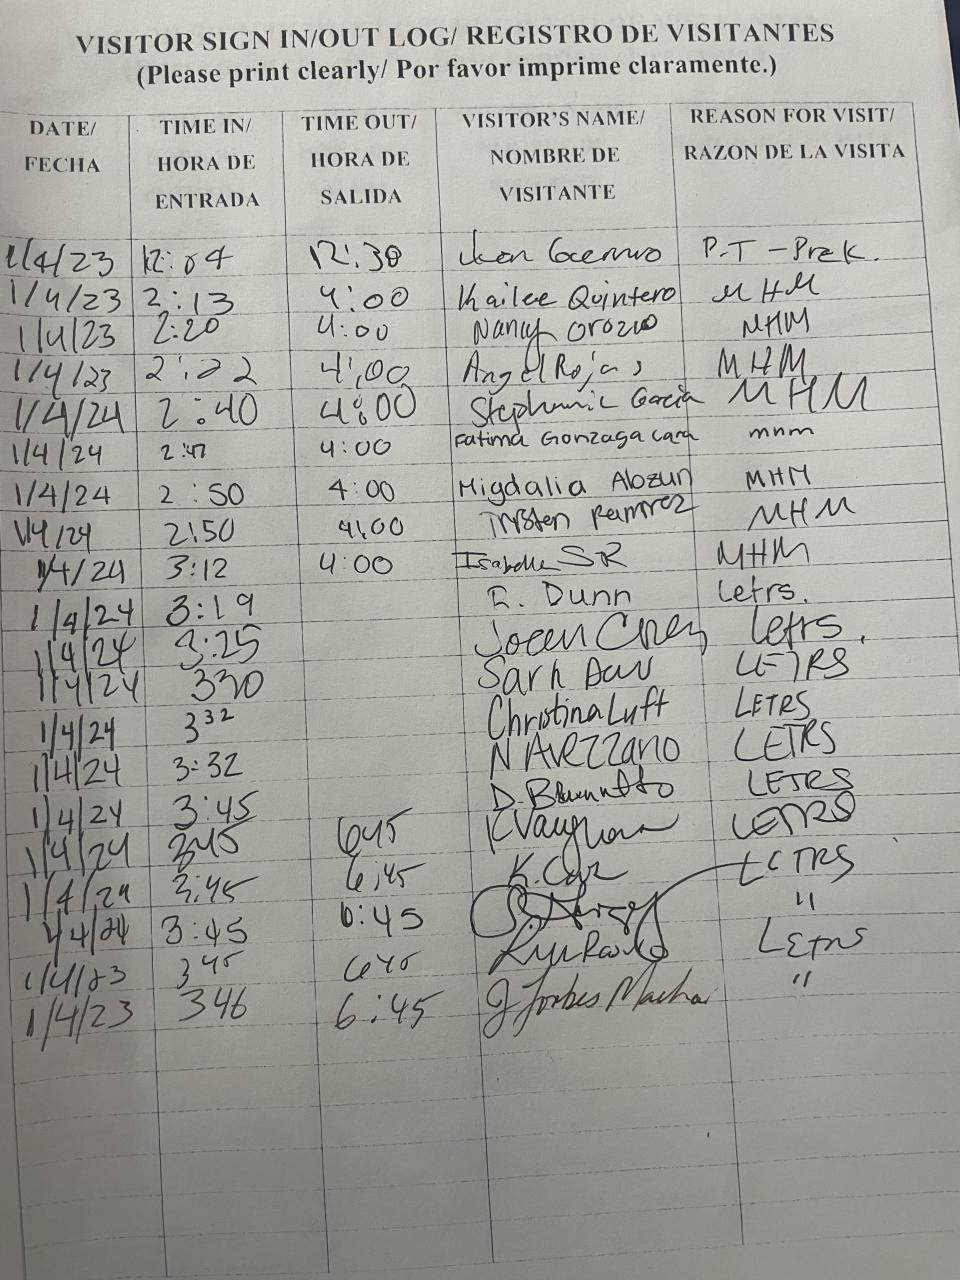 VISITOR SIGN IN/OUT LOG/ REGISTRO DE VISITANTES
(Please print clearly/ Por favor imprime claramente.)
DATE/ FECHA TIME IN/ HORA DE ENTRADA TIME OUT/ HORA DE SALIDA VISITOR'S NAME/ NOMBRE DE VISITANTE REASON FOR VISIT/ RAZON DE LA VISITA
1/4/23 12:04 12:30 P.T - Prek.
1/4/23 2:13 4:00 Kailee Quintero MHM
1/4/23 2:20 4:00 Nancy Orozco MHM
1/4/23 2:22 4:00 Angel Rojas MHM
1/4/24 2:40 4:00 Stephanie Garcia MHM
1/4/24 2:47 4:00 Fatima Gonzaga mhm
1/4/24 2:50 4:00 Migdalia MHM
1/4/24 2:50 4:00 Tristen Ramirez MHM
1/4/24 3:12 4:00 Isabella SR MHM
1/4/24 3:19 Dunn Letrs.
1/4/24 3:25 Letrs.
1/4/24 330 LETRS
1/4/24 3 32 Christina Luft LETRS
1/4/24 3:32 N Avezzano LETRS
1/4/24 3:45 D. LETRS
1/4/24 345 645 K Vaughan LETRS
1/4/24 3:45 6:45 K. LETRS
1/4/24 3:45 6:45 "
1/4/23 345 645 Letrs
1/4/23 346 6:45 J Forbes "